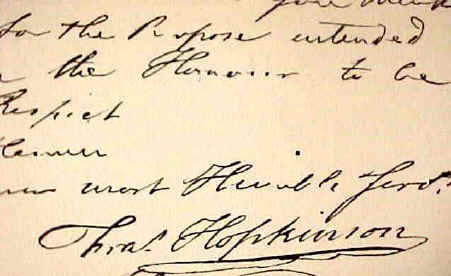 for the Purpose intended
the Honour to be
Respect
most Humble Servt.
Fras. Hopkinson